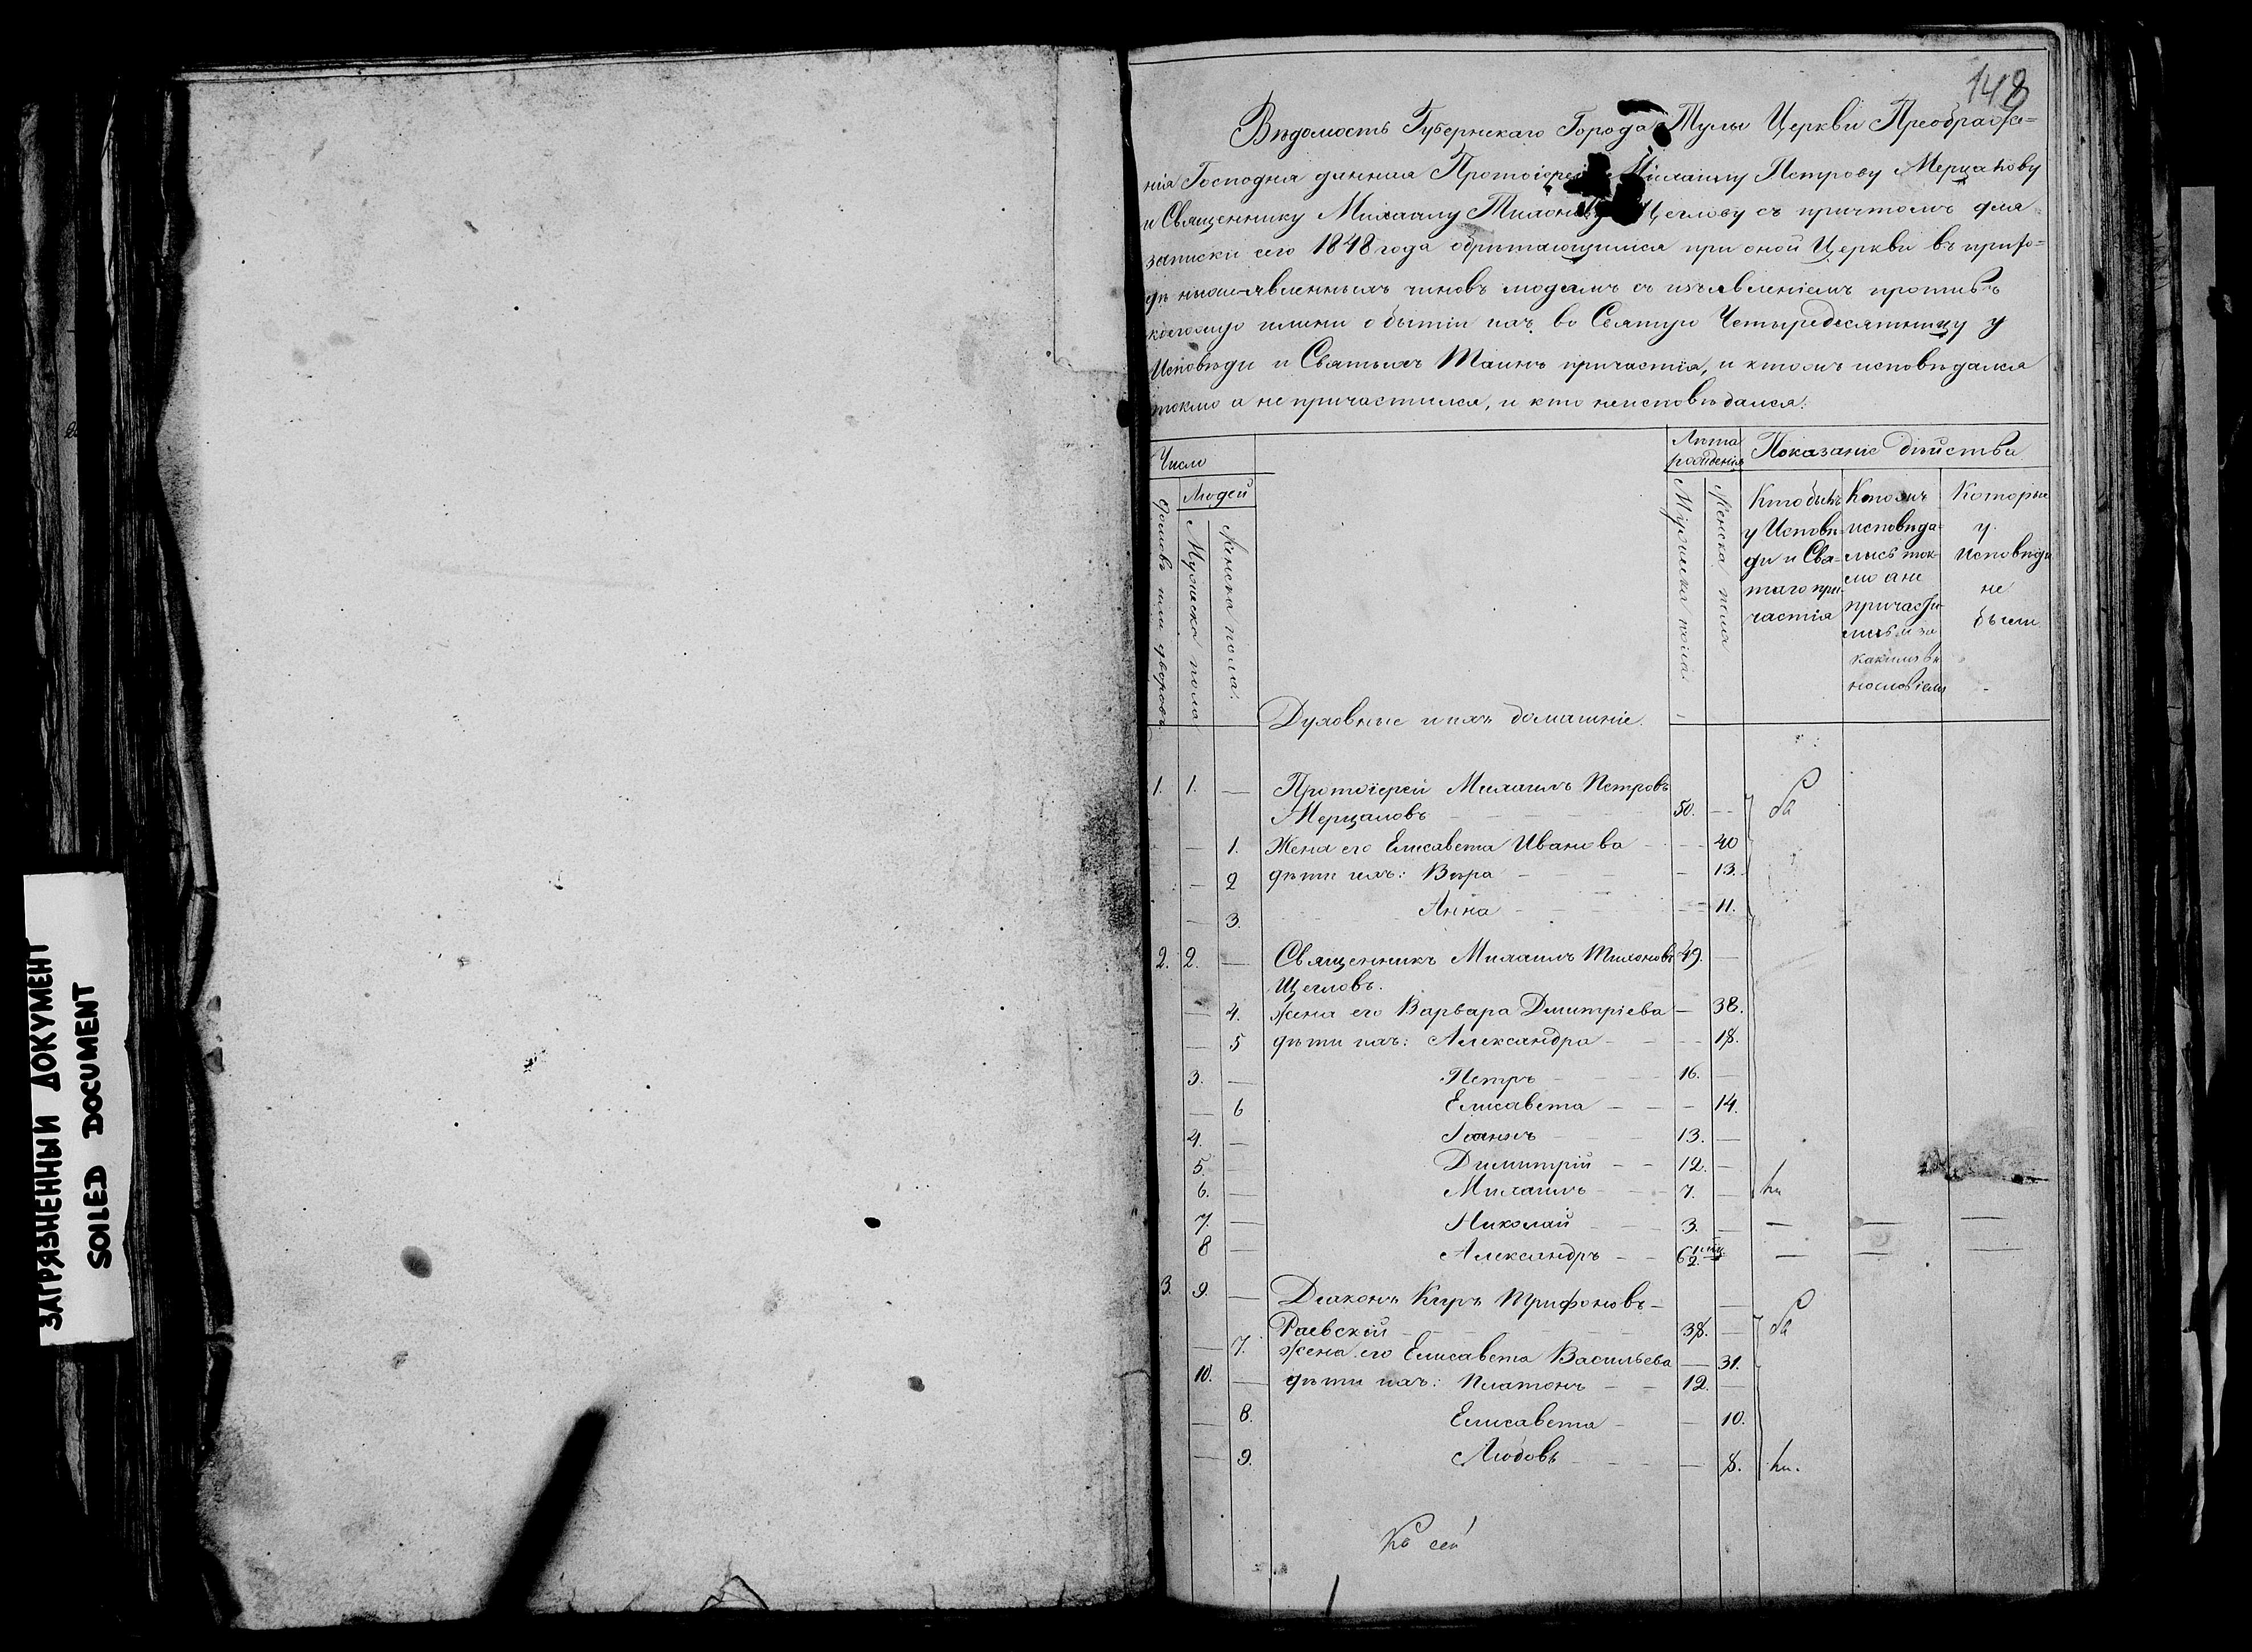 148
Вѣдомость Губернскаго Города Тулы Церкви Преображе=
нія Господня данная Протоіерею Михаилу Петрову Мерцалову
и Священнику Михаилу Тихонову Щеглову съ причтомъ для
записки сего 1848 года обрѣтающимся при оной Церкви въ прихо=
дѣ нижеявленныхъ чиновъ людямъ съ изъявленіемъ противъ
коегождо имени о бытіи ихъ во Святую Четыредесятницу у
Исповѣди и Святыхъ Таинъ причастія, и ктожъ исповѣдался
токмо а не причастился, и кто неисповѣдался.
Число
Лѣта рожденія
Показаніе дѣйства
Людей
домовъ или дворовъ
Мужеска пола
Женска пола.
Мужеска пола
Женска пола
Кто былъ у Исповѣ- ди и Свя- таго при- частія
Ктожъ исповѣда- лись ток- мо а не причасти- лись и за какимъ ви- нословіемъ
Которые у Исповѣди не были
Духовные и ихъ домашніе.
1. 1. — Протоіерей Михаилъ Петровъ
Мерцаловъ 50. —
— 1. Жена его Елисавета Иванова — 40
— 2 дѣти ихъ: Вѣра — 13.
— 3. Анна — 11.
2. 2. — Священникъ Михаилъ Тихоновъ 49. —
Щегловъ.
— 4. жена его Варвара Дмитріева — 38.
— 5 дѣти ихъ: Александра — 18.
3. — Петръ 16. —
— 6 Елисавета — 14.
4. — Іоаннъ 13. —
5. — Димитрій 12. —
6. — Михаилъ 7. —
7. — Николай 3. — — — —
8 — Александръ — — —
3. 9. — Діаконъ Киръ Трифоновъ —
Раевскій 38. —
— 7. жена его Елисавета Васильева — 31.
10. — дѣти ихъ: Платонъ 12. —
— 8. Елисавета — 10.
— 9. Любовь — 8.
Къ сей
ЗАГРЯЗНЕННЫЙ ДОКУМЕНТ
SOILED DOCUMENT